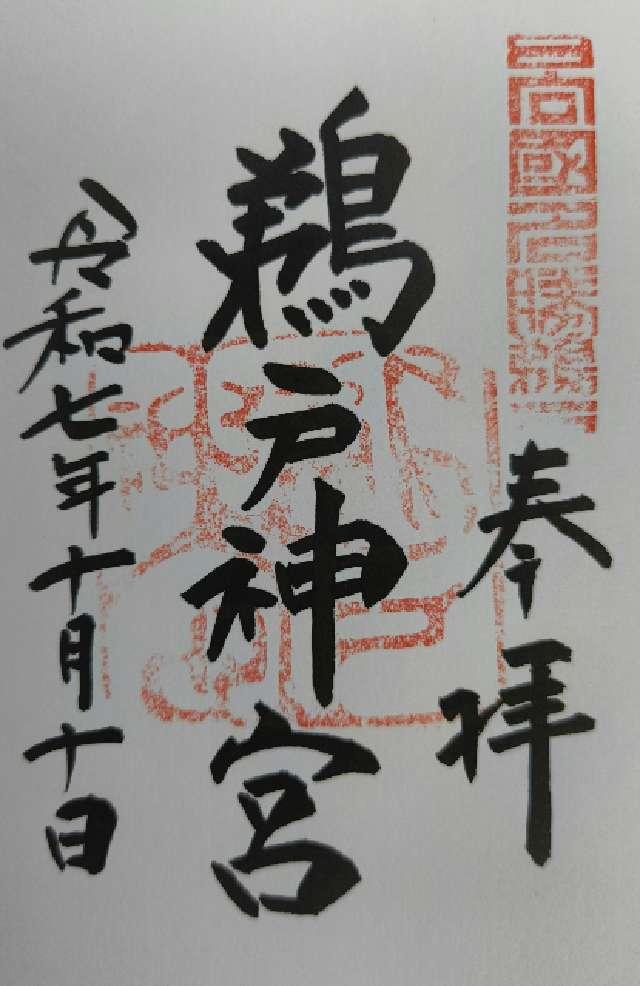 奉拝
鵜戸神宮
令和七年十月十日